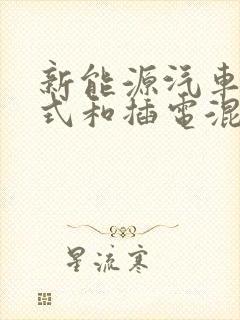 新能源汽車
式和插電混
星流寒